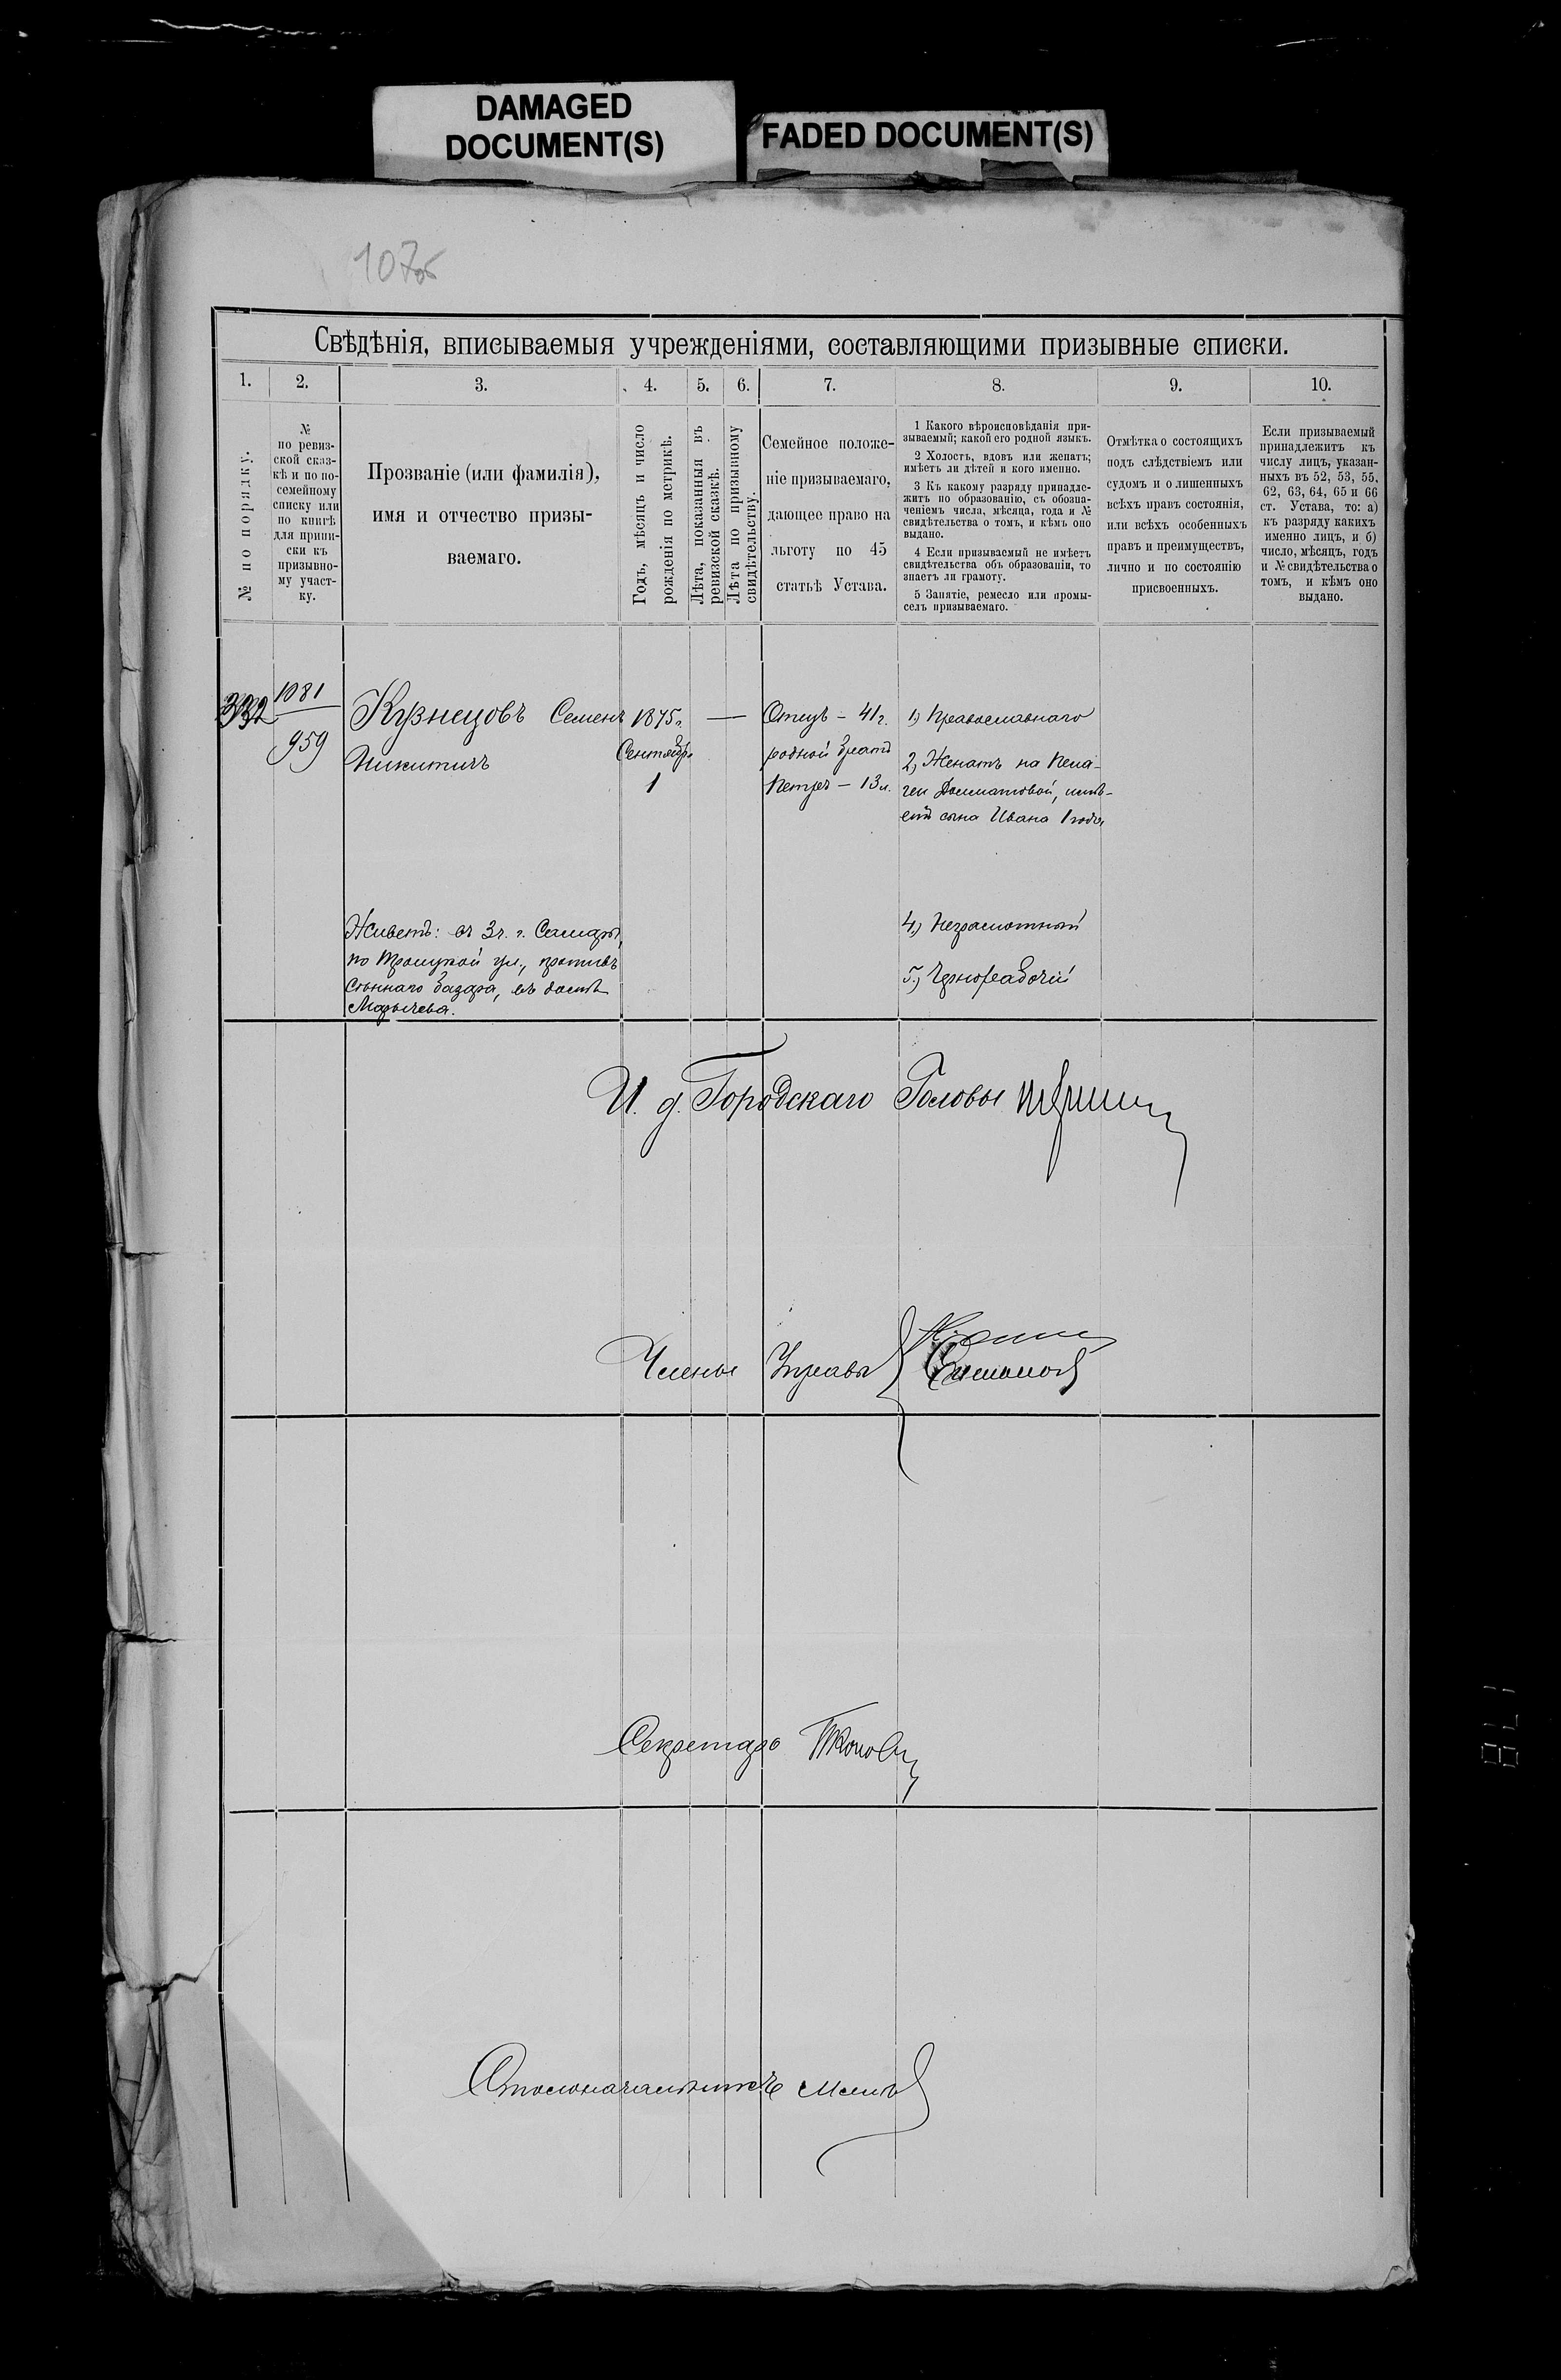 DAMAGED
DOCUMENT(S)
FADED DOCUMENT(S)
107об
Свѣдѣнія, вписываемыя учрежденіями, составляющими призывные списки.
1. 2. 3. 4. 5. 6. 7. 8. 9. 10.
№ по порядку.
№
по ревиз-
ской сказ-
кѣ и по по-
семейному
списку или
по книгѣ
для припи-
ски къ
призывно-
му участ-
ку.
Прозваніе (или фамилія),
имя и отчество призы-
ваемаго.
Годъ, мѣсяцъ и число
рожденія по метрикѣ.
Лѣта, показанныя въ
ревизской сказкѣ.
Лѣта по призывному
свидѣтельству.
Семейное положе-
ніе призываемаго,
дающее право на
льготу по 45
статьѣ Устава.
1 Какого вѣроисповѣданія при-
зываемый; какой его родной языкъ.
2 Холостъ, вдовъ или женатъ;
имѣетъ ли дѣтей и кого именно.
3 Къ какому разряду принадле-
житъ по образованію, съ обозна-
ченіемъ числа, мѣсяца, года и №
свидѣтельства о томъ, и кѣмъ оно
выдано.
4 Если призываемый не имѣетъ
свидѣтельства объ образованіи, то
знаетъ ли грамоту.
5 Занятіе, ремесло или промы-
селъ призываемаго.
Отмѣтка о состоящихъ
подъ слѣдствіемъ или
судомъ и о лишенныхъ
всѣхъ правъ состоянія,
или всѣхъ особенныхъ
правъ и преимуществъ,
лично и по состоянію
присвоенныхъ.
Если призываемый
принадлежитъ къ
числу лицъ, указан-
ныхъ въ 52, 53, 55,
62, 63, 64, 65 и 66
ст. Устава, то: а)
къ разряду какихъ
именно лицъ, и б)
число, мѣсяцъ, годъ
и № свидѣтельства о
томъ, и кѣмъ оно
выдано.
332
1081
959
Кузнецовъ Семенъ
Никитичъ
1875г.
Сентября
1
—
Отецъ – 41г.
родной братъ
Петръ – 13л.
1) Православнаго
2) Женатъ на Пела-
геи Долматовой, имѣ-
етъ сына Ивана 1 года
4) Неграмотный
5) Чернорабочій
Живетъ: въ 3ч. г. Самары,
по Троицкой ул., противъ
Сѣннаго базара, въ домѣ
И. д. Городскаго Головы
Члены Управы
Секретарь
Столоначальникъ
178